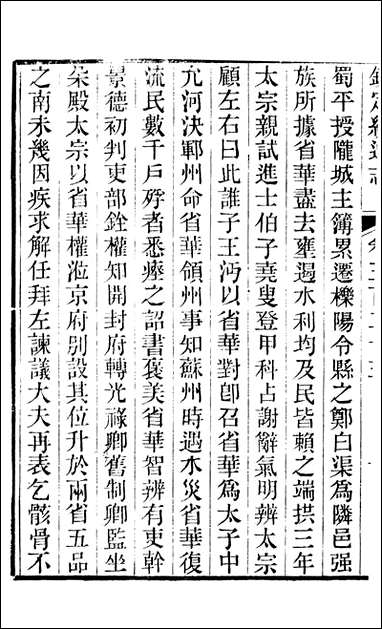 欽定續通志
蜀平授隴城主簿累遷櫟陽令縣之鄭白渠爲隣邑强
族所據省華盡去壅遏水利均及民皆賴之端拱三年
太宗親試進士伯子堯叟登甲科占謝辭氣明辨太宗
顧左右曰此誰子王沔以省華對卽召省華爲太子中
允河決鄆州命省華領州事知蘇州時遇水災省華復
流民數千戸殍者悉瘞之詔書褒美省華智辨有吏幹
景德初判吏部銓權知開封府轉光祿卿舊制卿監坐
朵殿太宗以省華權涖京府別設其位升於兩省五品
之南未幾因疾求解任拜左諫議大夫再表乞骸骨不